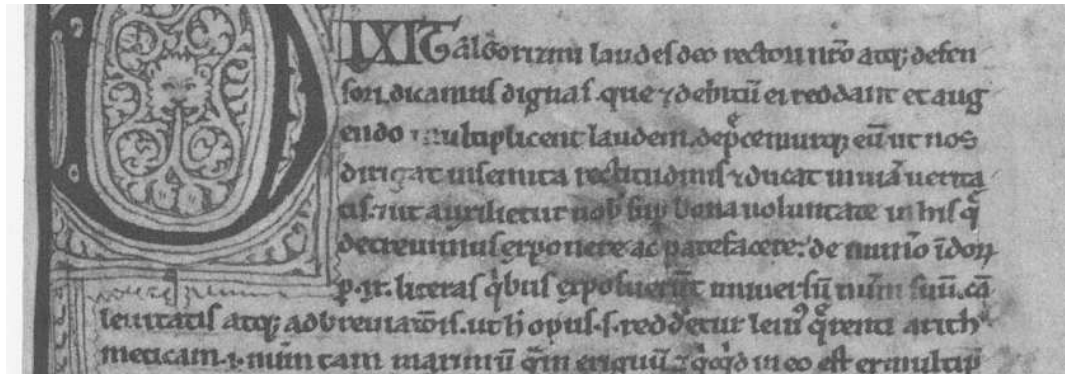 DIXIT algorizmi laudes deo rectori nr̄o atq; defen
sori. dicamus dignas. que ⁊ debitū ei reddant et aug
endo multiplicent laudem. dep̄cemurq; eū ut nos
dirigat in semita rectitudinis ⁊ ducat in uiā uerita
tis. ⁊ ut auxilietur nob sup bona uoluntate in his q̄
decreuimus exponere ac patefacere: de num̄o īdoꝝ
p .ıx. literas q̇bus exposuerūt uniuersū num̄ suū. cā
leuitatis atq; adbreuiatōis. ut h̄ opus .s. redderetur leui⁹ q̄renti arith
meticam .i. num̄ tam maximū q̄m exiguū ⁊ q̇cq̇d in eo est ex multip̄